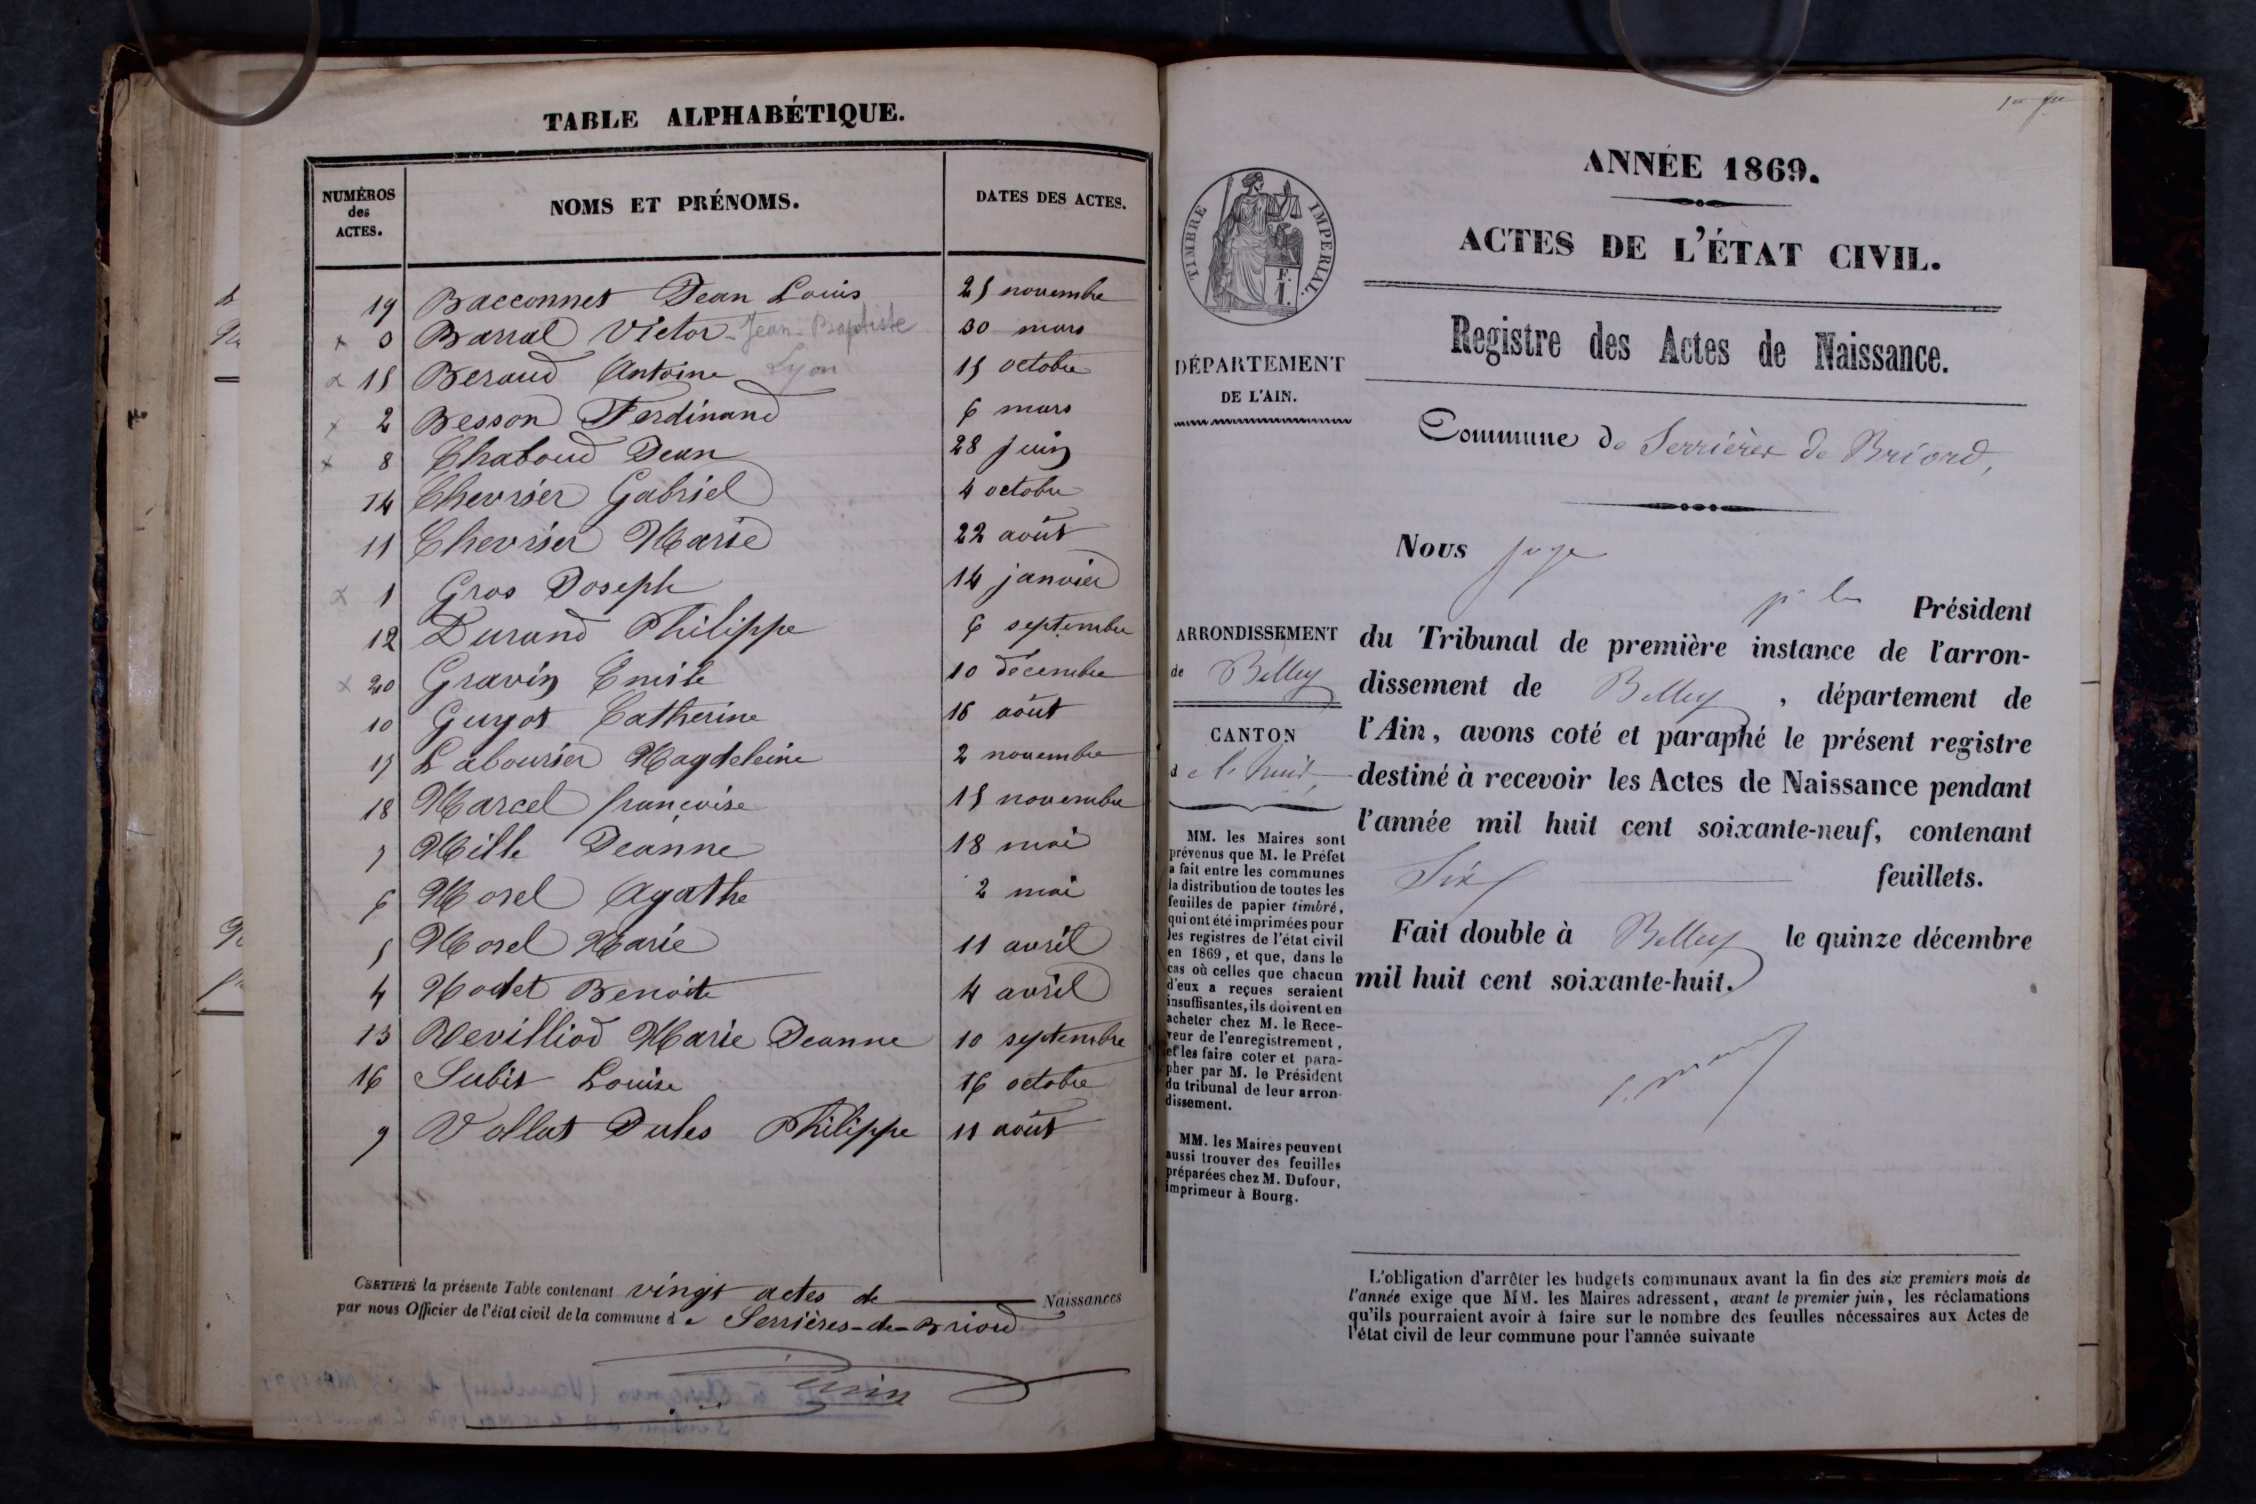 TABLE ALPHABÉTIQUE.
NUMÉROS des ACTES. NOMS ET PRÉNOMS. DATES DES ACTES.
19 Bacconnet Jean Louis 25 novembre
x 3 Barral Victor - Jean-Baptiste 30 mars
x 15 Beraud Antoine Lyon 15 octobre
x 2 Besson Ferdinand 6 mars
x 8 Chaboud Jean 28 juin
14 Chevrier Gabriel 4 octobre
11 Chevrier Marie 22 août
x 1 Gros Joseph 14 janvier
12 Durand Philippe 6 septembre
x 20 Gravin Emile 10 décembre
10 Guyot Catherine 16 août
17 Labourier Magdeleine 2 novembre
18 Marcel françoise 15 novembre
7 Mille Jeanne 18 mai
6 Morel Agathe 2 mai
5 Morel Marie 11 avril
4 Nodet Benoite 4 avril
13 Revilliod Marie Jeanne 10 septembre
16 Subit Louise 16 octobre
9 Vollat Jules Philippe 11 août
CERTIFIÉ la présente Table contenant vingt actes de Naissances
par nous Officier de l'état civil de la commune de Serrières-de-Briord
ANNÉE 1869.
ACTES DE L'ÉTAT CIVIL.
TIMBRE IMPERIAL.
Registre des Actes de Naissance.
DÉPARTEMENT
DE L'AIN.
Commune de Serrières de Briord,
Nous juge
pr le Président
ARRONDISSEMENT
de Belley
CANTON
de l'huis
du Tribunal de première instance de l'arron-
dissement de Belley, département de
l'Ain, avons coté et paraphé le présent registre
destiné à recevoir les Actes de Naissance pendant
l'année mil huit cent soixante-neuf, contenant
Six feuillets.
Fait double à Belley le quinze décembre
mil huit cent soixante-huit.
MM. les Maires sont
prévenus que M. le Préfet
a fait entre les communes
la distribution de toutes les
feuilles de papier timbré,
qui ont été imprimées pour
les registres de l'état civil
en 1869, et que, dans le
cas où celles que chacun
d'eux a reçues seraient
insuffisantes, ils doivent en
acheter chez M. le Rece-
veur de l'enregistrement,
et les faire coter et para-
pher par M. le Président
du tribunal de leur arron-
dissement.
MM. les Maires peuvent
aussi trouver des feuilles
préparées chez M. Dufour,
imprimeur à Bourg.
L'obligation d'arrêter les budgets communaux avant la fin des six premiers mois de
l'année exige que MM. les Maires adressent, avant le premier juin, les réclamations
qu'ils pourraient avoir à faire sur le nombre des feuilles nécessaires aux Actes de
l'état civil de leur commune pour l'année suivante